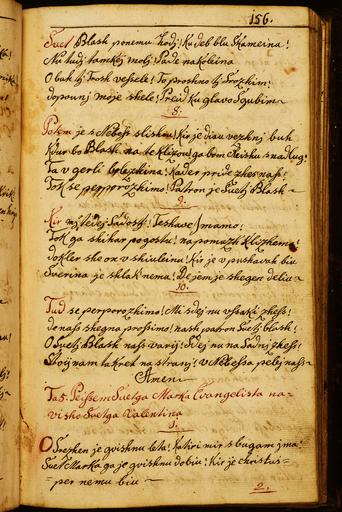 156.
Suet Blash ponemu hodj! Ku deb blu Skameina!
Na tvdj tamkej molj! Pade na koleina
O buh tj Trosh vessele! To proshno tj Srozhim!
dopounj moje shele! Preid ku glavo Sgubim
8.
Potem je s Nebess slishou! Kir je diau vezhnj buh
Kdur bo Blash na te klizou ga bom
Ta v gorli bolezhina! Kader pride zhes nass!
Tok se perporozhimo! Patron je Suetj Blash
9.
Kir Sadostj! Teshave Jmamo!
Tok ga skihar pogostu! na pomuzh klizhem!
dokler she on v shiuleinu! Kir je v pushavah biu
Sverina je skla K nema! De jem je shegen deliu
10.
Tud se perporozhimo! Mi sdej nu vssaki zhess!
de nass shegna prossimo! nash patron Suetj blash!
O Suetj Blash nass varij! Sdej nu na Sadnj zhess!
Stoj nam ta kret na stranj! v Nebessa pelej nass
Amen
Ta 5. Pejsem Suetga Marka Evangelista na-
visho Suetga Valentina
1.
O Srezhen je gvishnu leta! Katiri mir s bugam jma!
Suet Marka ga je gvishnu dobiu! Kir je christus-
per nemu biu
2.